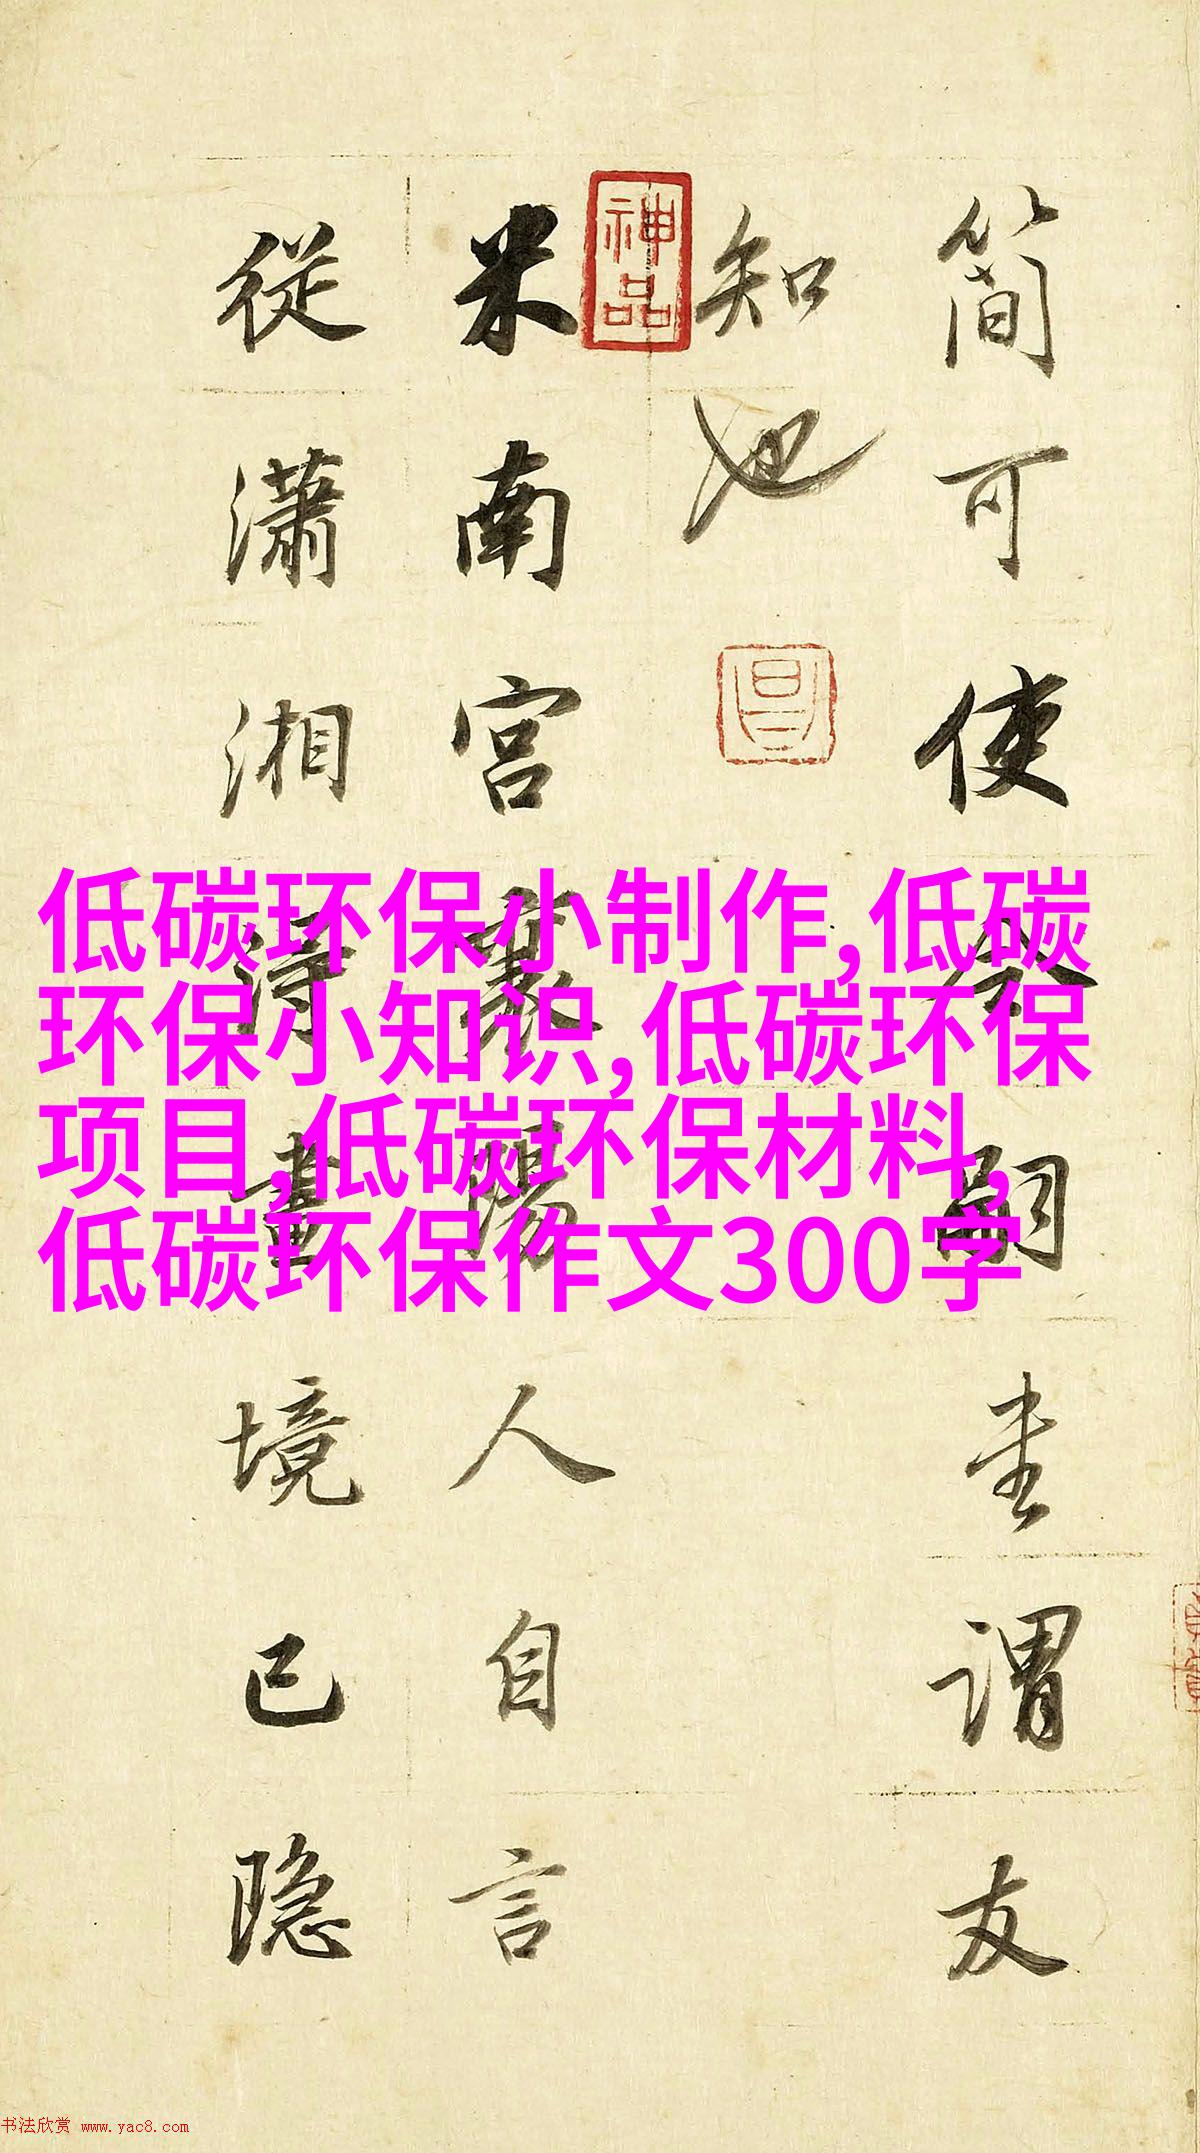 簡可使令嗣圭謂友
知也
米南宮襄陽人自言
從瀟湘得畫境已隱
神品
低碳环保小制作,低碳
环保小知识,低碳环保
项目,低碳环保材料,
低碳环保作文300字
书法欣赏 www.yac8.com